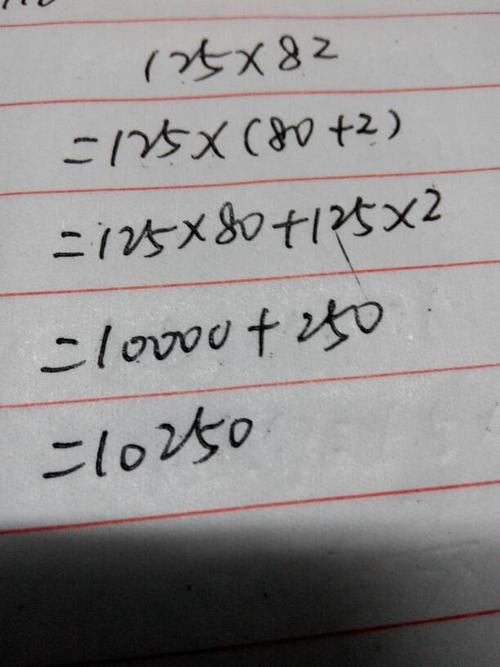 125×82
=125×(80+2)
=125×80+125×2
=10000+250
=10250